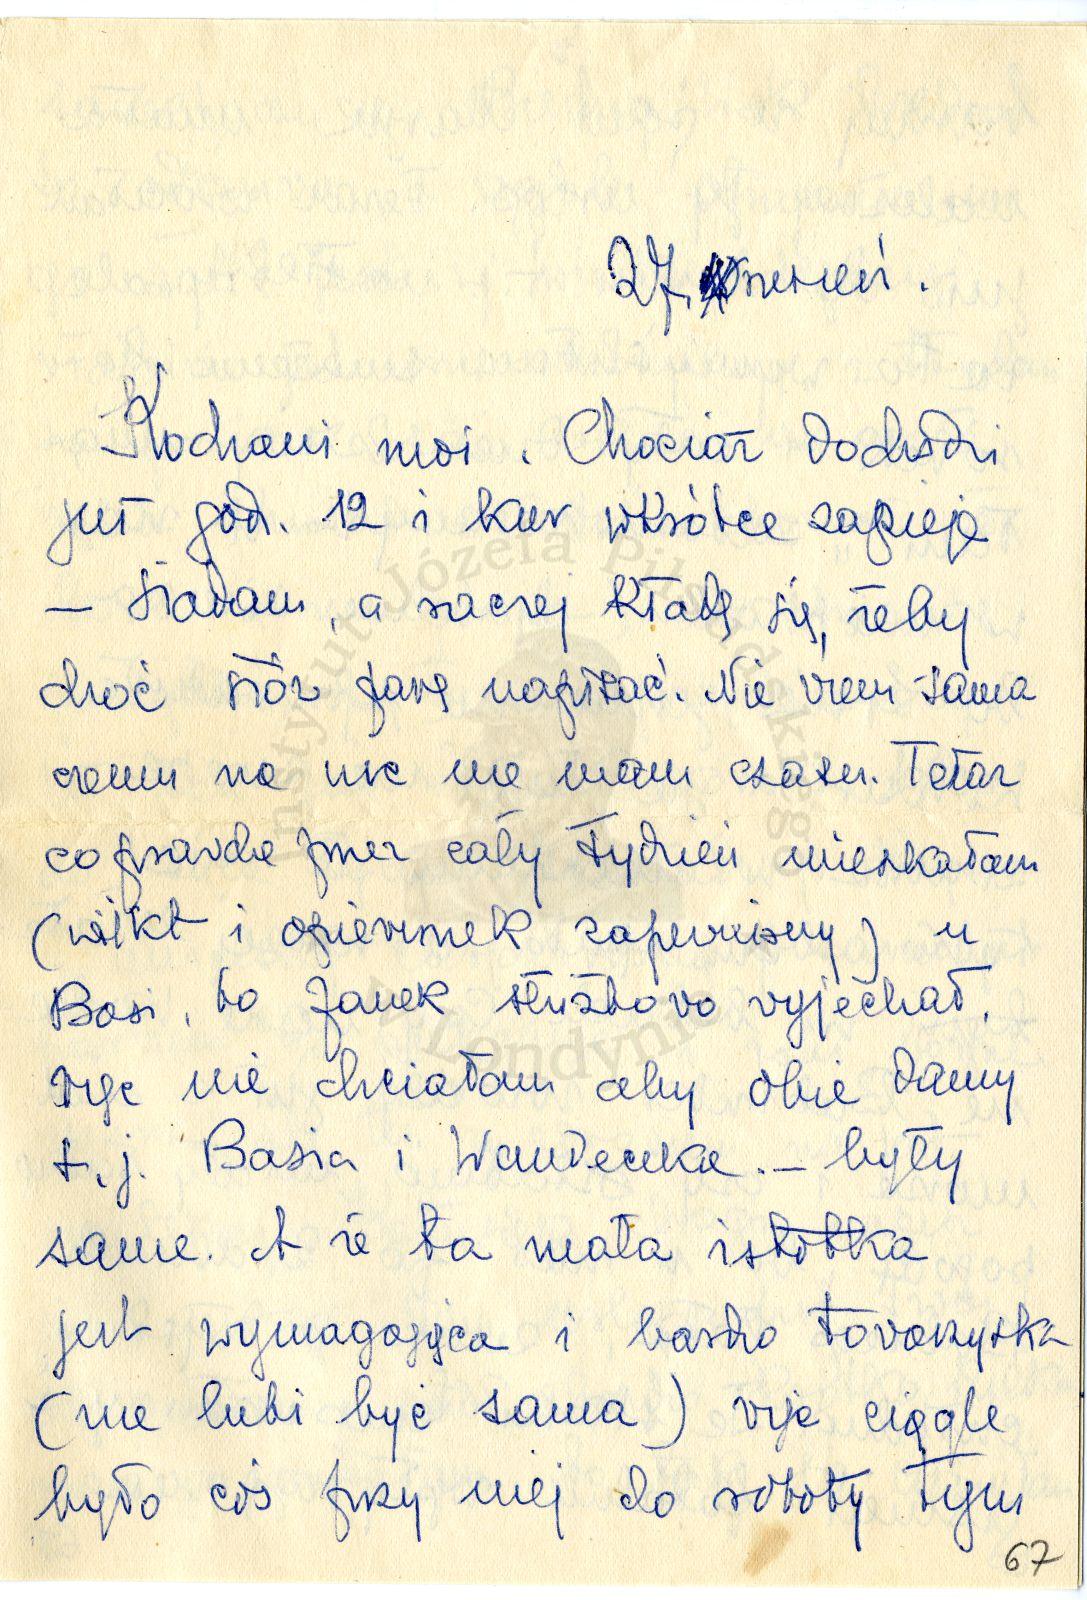 27. wrzesień.
Kochani moi. Chociaż dochodzi
już god. 12 i kur wkrótce zapieje
— siadam, a raczej kładę się, żeby
choć słów parę napisać. Nie wiem sama
czemu na nic nie mam czasu. Teraz
co prawda przez cały tydzień mieszkałam
(wikt i opierunek zapewniony) u
Basi, bo Janek służbowo wyjechał,
więc nie chciałam aby obie damy
t.j. Basia i Wandeczka. — były
same. A że ta mała istotka
jest wymagająca i bardzo towarzyska
(nie lubi być sama) więc ciągle
było coś przy niej do roboty tym
67
Instytut Józefa Piłsudskiego
w Londynie